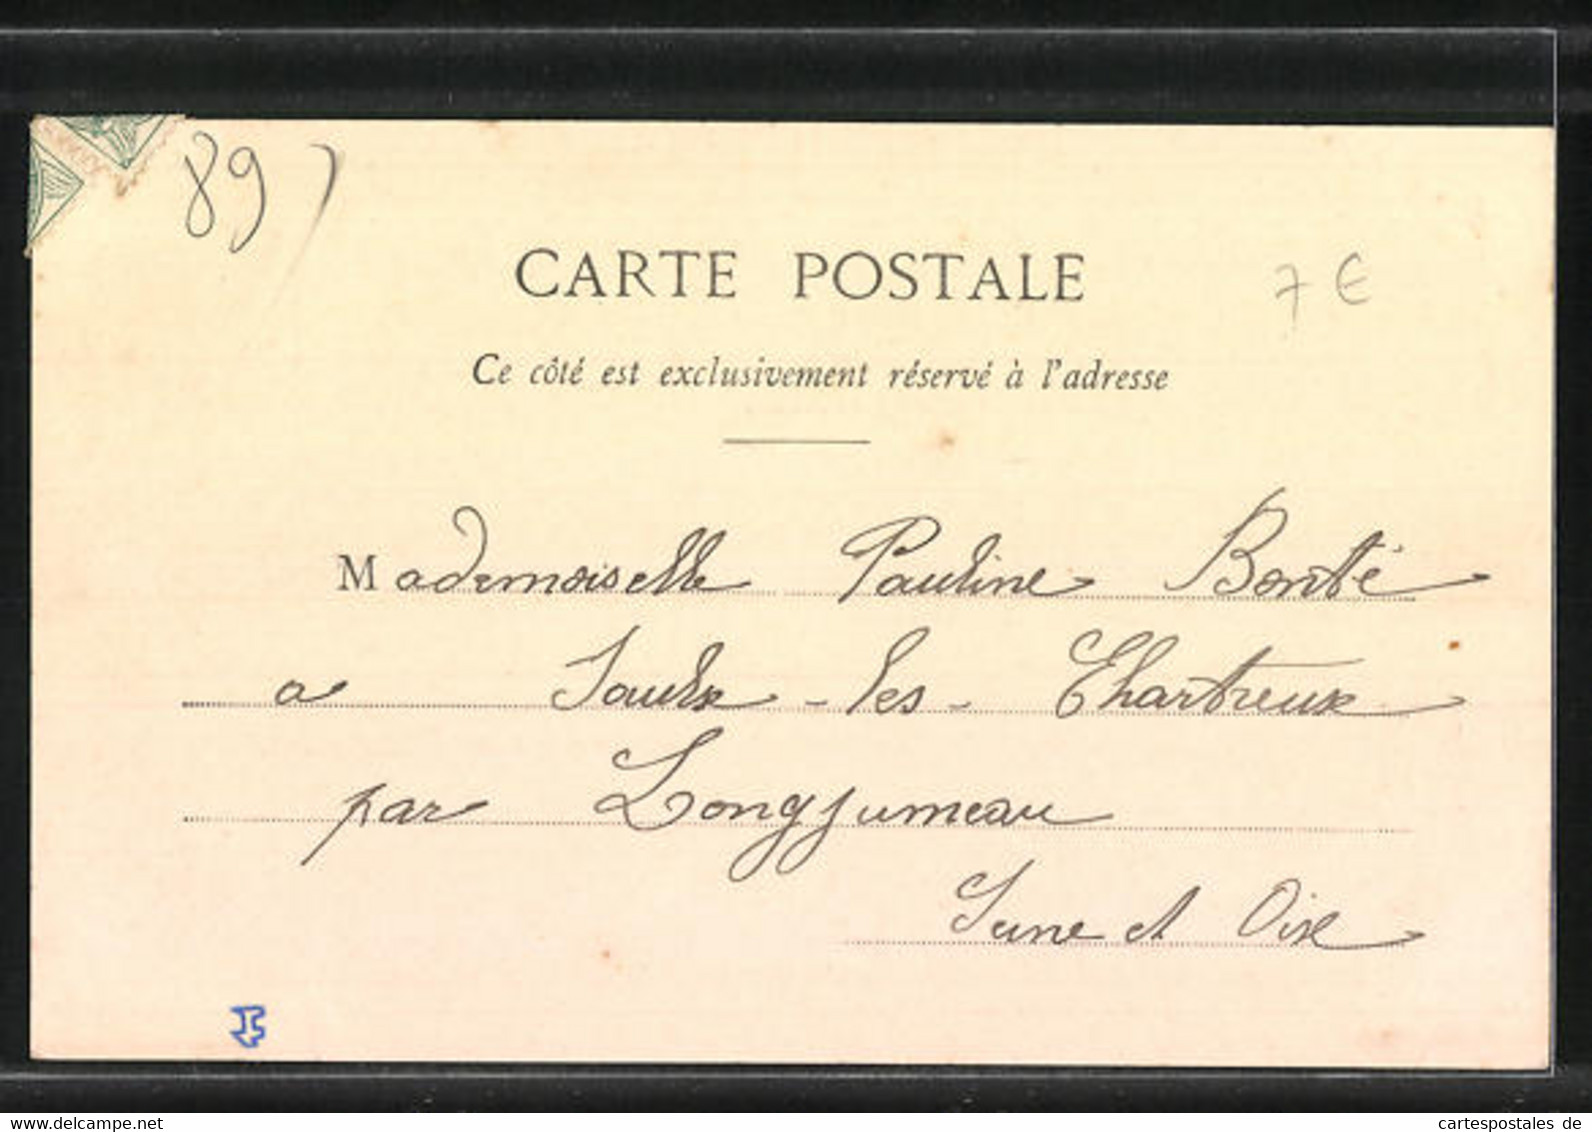 89)
CARTE POSTALE
7 €
Ce côté est exclusivement réservé à l'adresse
Mademoiselle Pauline Bonté
a Saulx - les - Chartreux
par Longjumeau
Seine et Oise
www.delcampe.net
cartespostales de